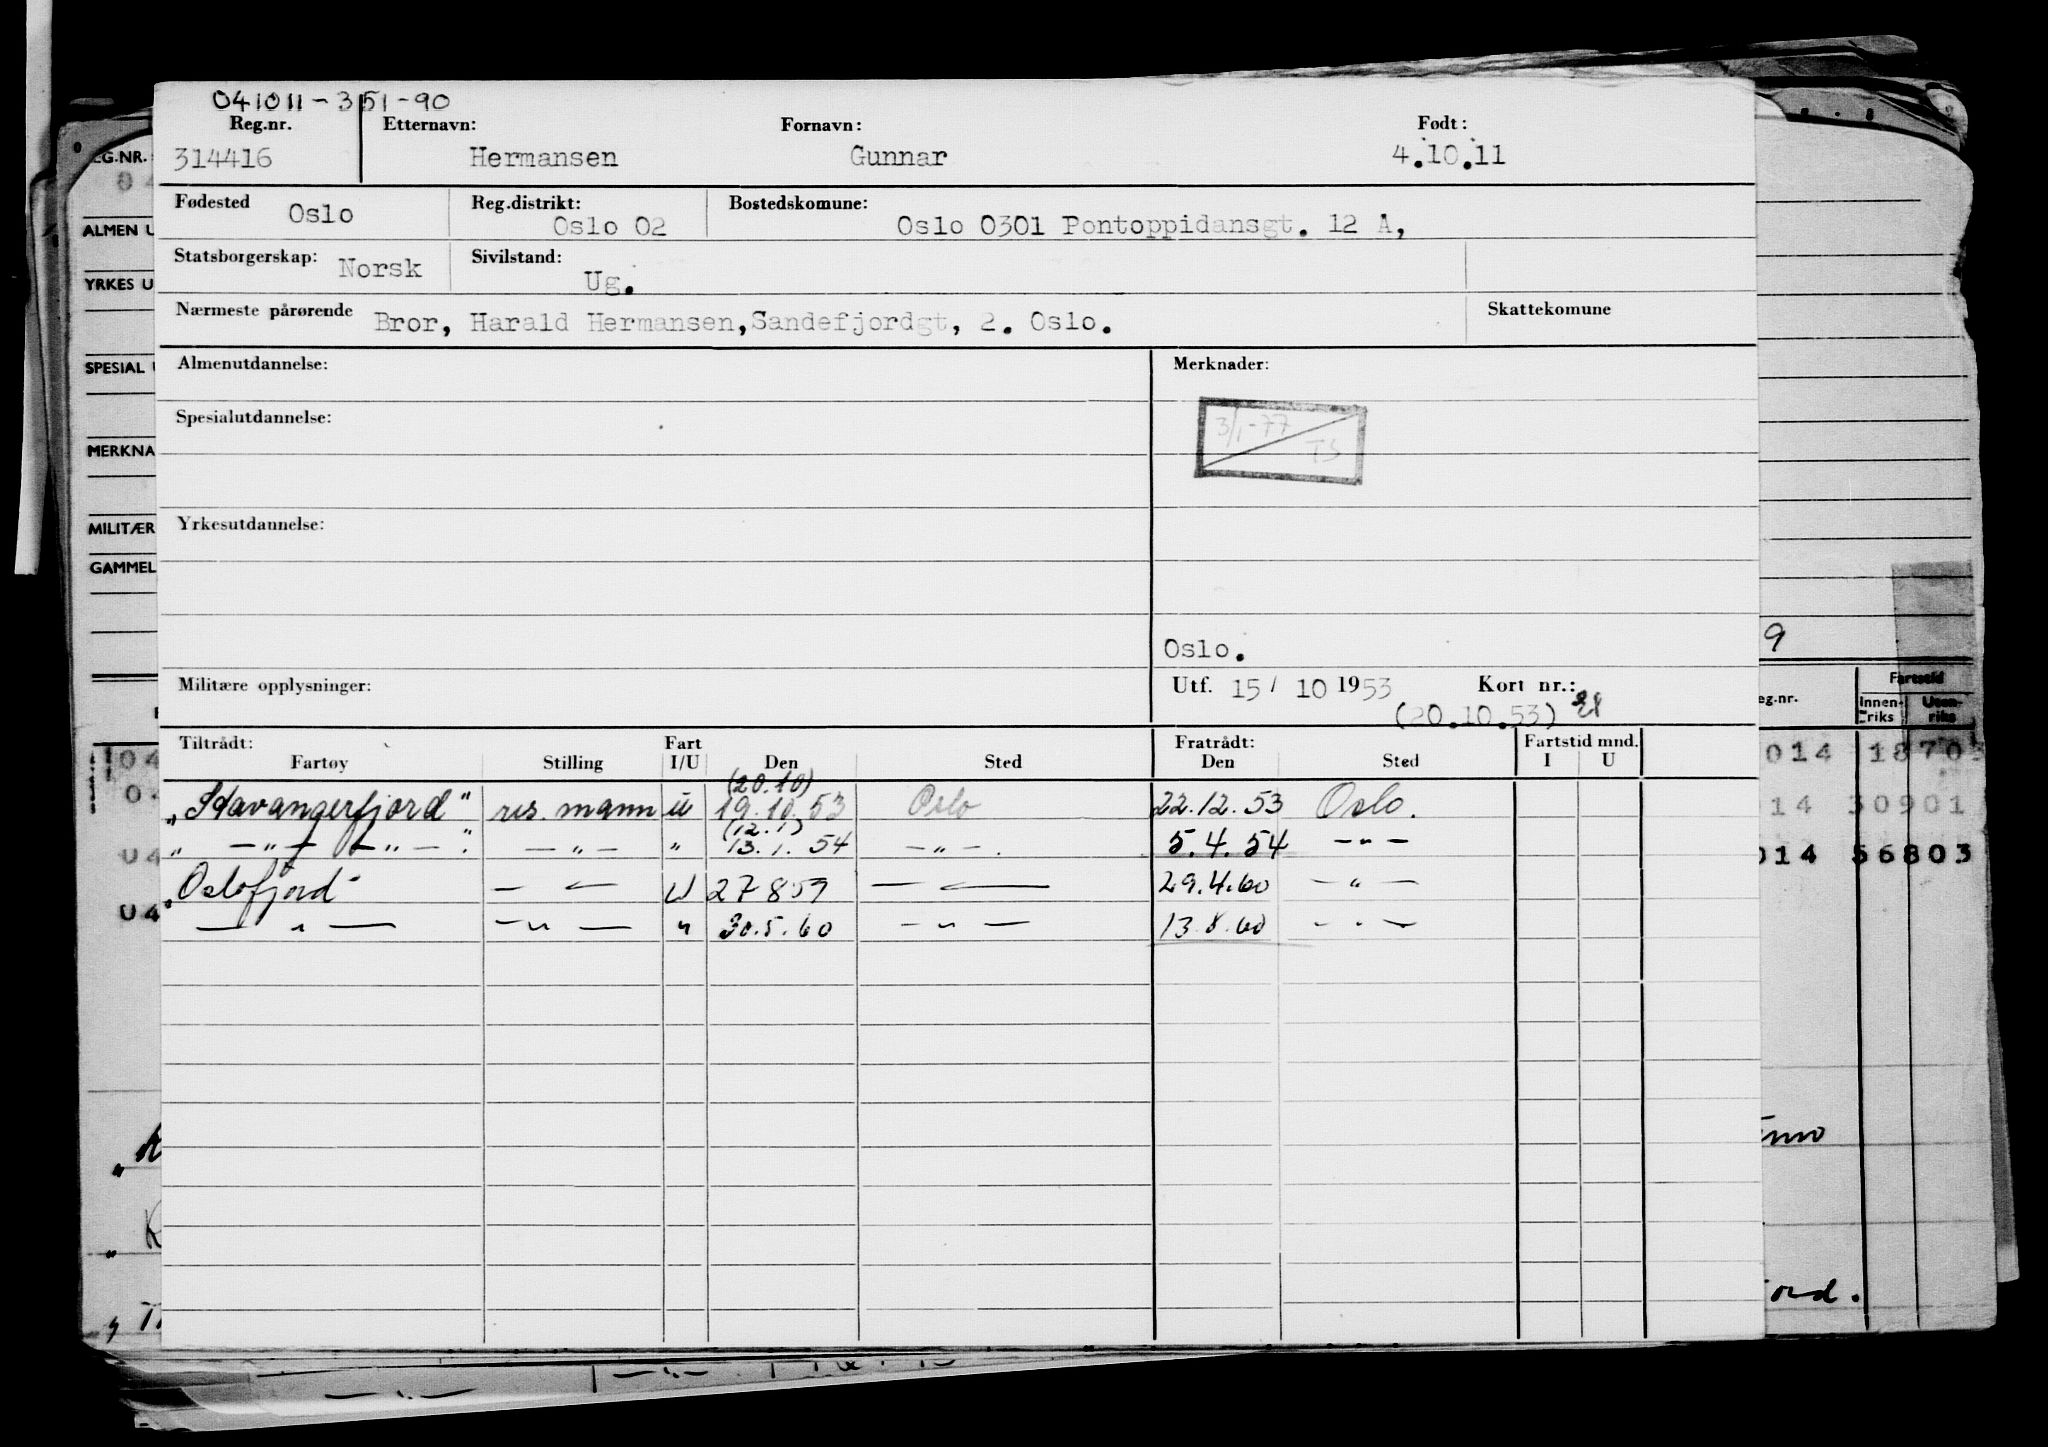 041011-351-90
Reg.nr. Etternavn: Fornavn: Født:
314416 Hermansen Gunnar 4.10.11
Fødested Oslo Reg.distrikt: Oslo 02 Bostedskomune: Oslo 0301 Pontoppidansgt. 12 A,
Statsborgerskap: Norsk Sivilstand: Ug.
Nærmeste pårørende Bror, Harald Hermansen, Sandefjordgt, 2. Oslo. Skattekomune
Almenutdannelse: Merknader:
Spesialutdannelse: 3/1-77 TS
Yrkesutdannelse:
Oslo.
Militære opplysninger: Utf. 15/ 10 1953 Kort nr.:
(20.10.53)
Tiltrådt: Fart Fratrådt: Fartstid mnd.
Fartøy Stilling I/U Den Sted Den Sted I U
(20.10)
"Stavangerfjord" res. mann u 19.10.53 Oslo 22.12.53 Oslo.
(12.1)
" —"— —"— " —"— " 13.1.54 —"—. 5.4.54 —"—
"Oslofjord" — — U 27859 — — 29.4.60 —"—
—"— —"— " 30.5.60 —"— 13.8.60 —"—
EG.NR.
04
ALMEN U
YRKES U
SPESIAL
MERKNA
MILITÆR
GAMMEL
04
04
04
9
eg.nr. Fartstid
Innen-riks Uten-riks
014 18703
14 30901
014 56803
ord.